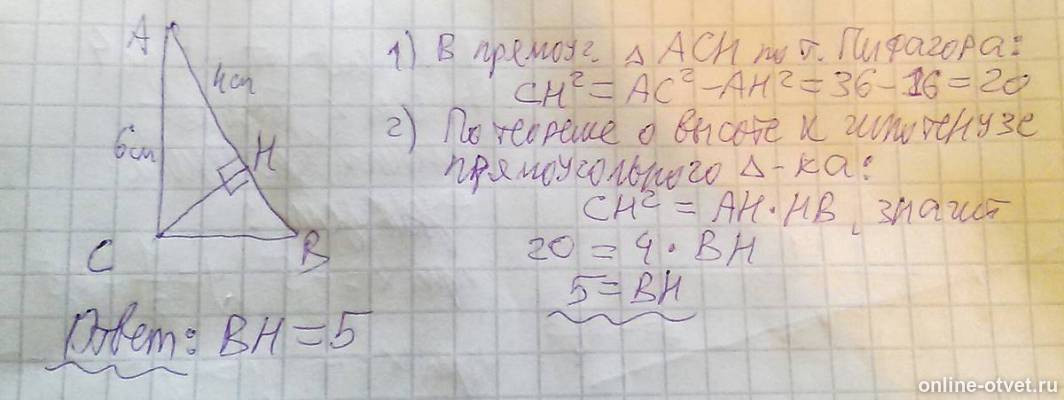 A
4см
6см
H
C
B
1) В прямоуг. △ ACH по т. Пифагора:
CH² = AC² - AH² = 36 - 16 = 20
2) По теореме о высоте к гипотенузе
прямоугольного △-ка:
CH² = AH · HB, значит
20 = 4 · BH
5 = BH
Ответ: BH = 5
online-otvet.ru